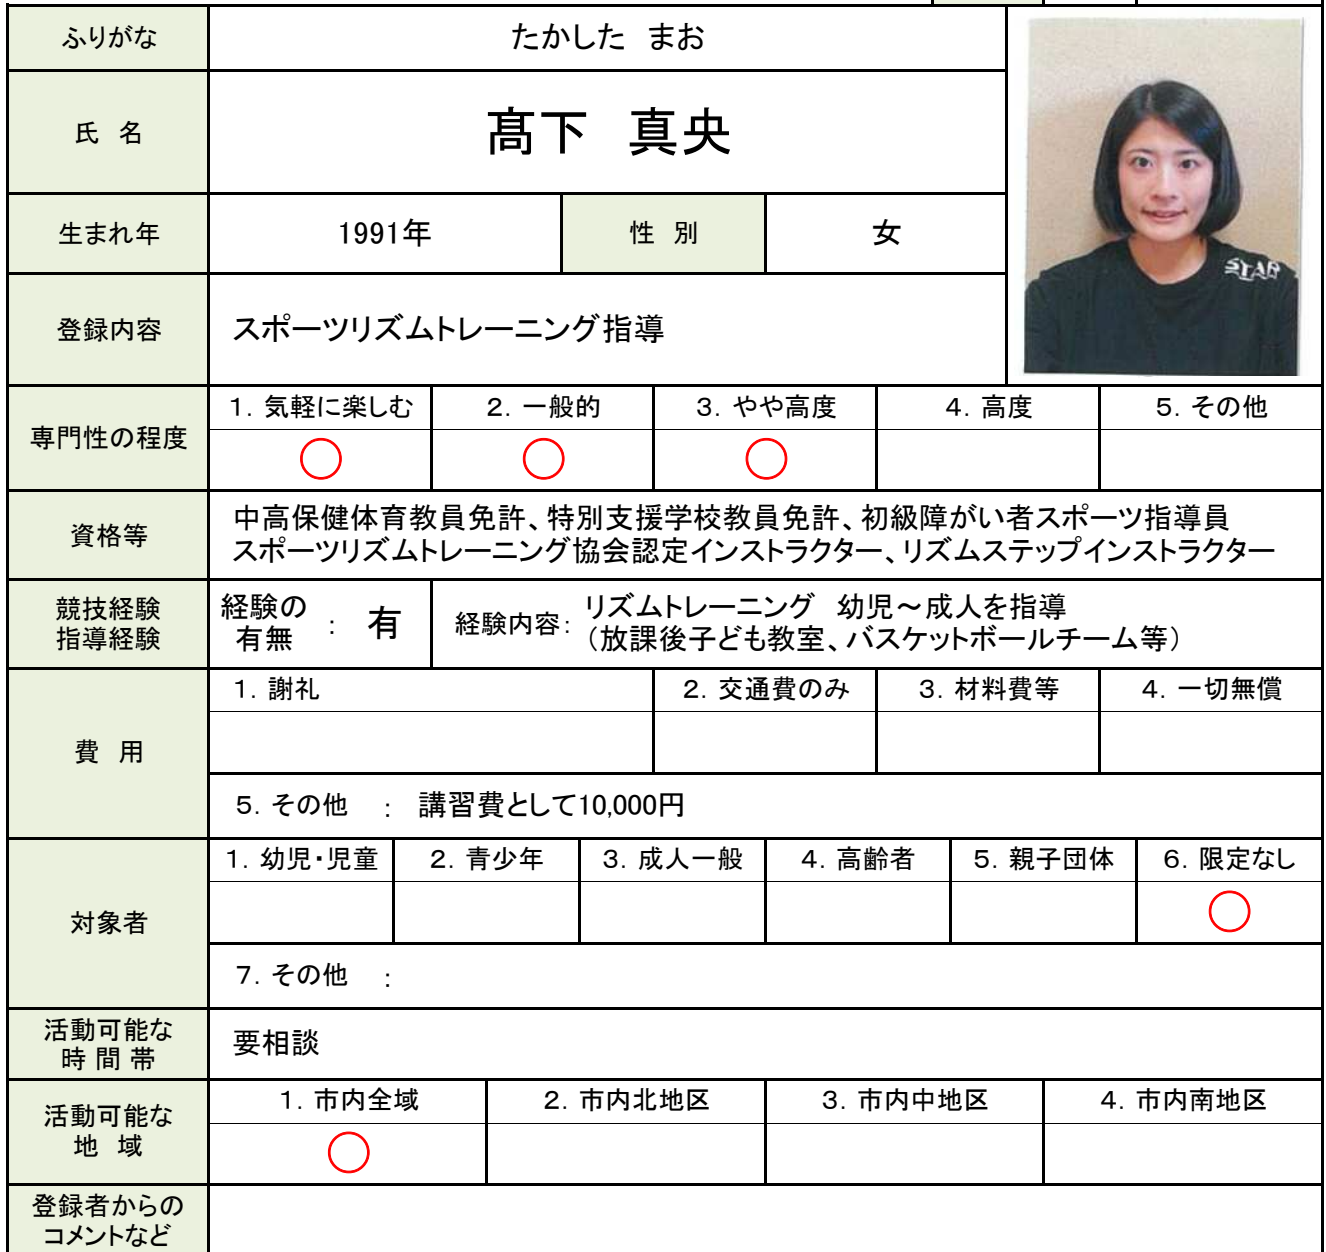 ふりがな
たかした　まお
氏　名
髙下　真央
生まれ年
1991年
性　別
女
STAR
登録内容
スポーツリズムトレーニング指導
専門性の程度
1．気軽に楽しむ
2．一般的
3．やや高度
4．高度
5．その他
◯
◯
◯
資格等
中高保健体育教員免許、特別支援学校教員免許、初級障がい者スポーツ指導員
スポーツリズムトレーニング協会認定インストラクター、リズムステップインストラクター
競技経験
指導経験
経験の
有無
：
有
経験内容：
リズムトレーニング　幼児～成人を指導
（放課後子ども教室、バスケットボールチーム等）
費　用
1．謝礼
2．交通費のみ
3．材料費等
4．一切無償
5．その他　：　講習費として10,000円
対象者
1．幼児・児童
2．青少年
3．成人一般
4．高齢者
5．親子団体
6．限定なし
◯
7．その他　：
活動可能な
時 間 帯
要相談
活動可能な
地　域
1．市内全域
2．市内北地区
3．市内中地区
4．市内南地区
◯
登録者からの
コメントなど